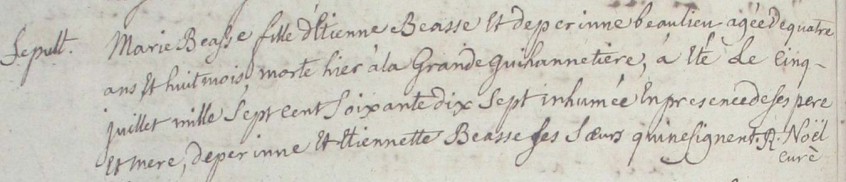 Sepult. Marie Beasse fille d'Etienne Beasse Et de perinne beaulieu agée De quatre
ans Et huit mois, morte hier à la Grande Guihannetière, à Eté Le Cinq
juillet mille Sept cent Soixante dix Sept inhumée En presence de ses pere
Et mere, de perinne Et Etiennette Beasse ses Sœurs qui ne signent. Noël
curé